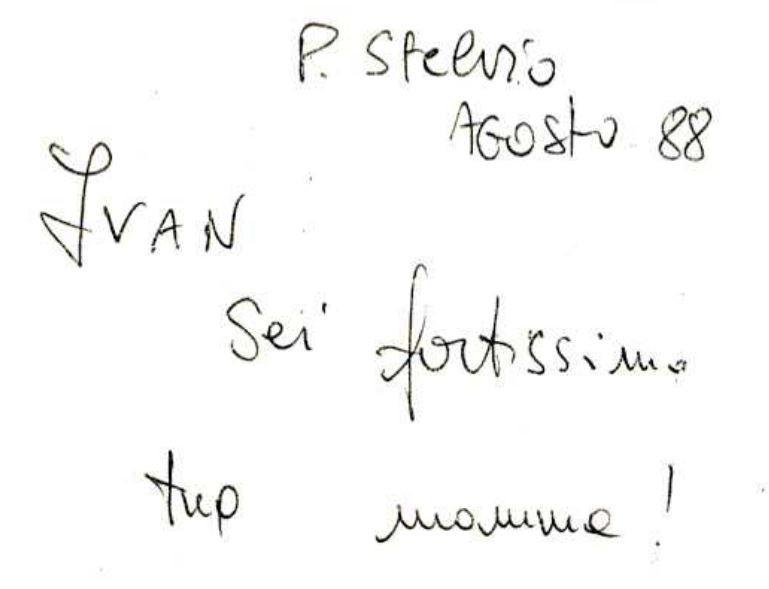 P. Stelvio
AGOSTO 88
IVAN
Sei fortissimo
tua mamma!